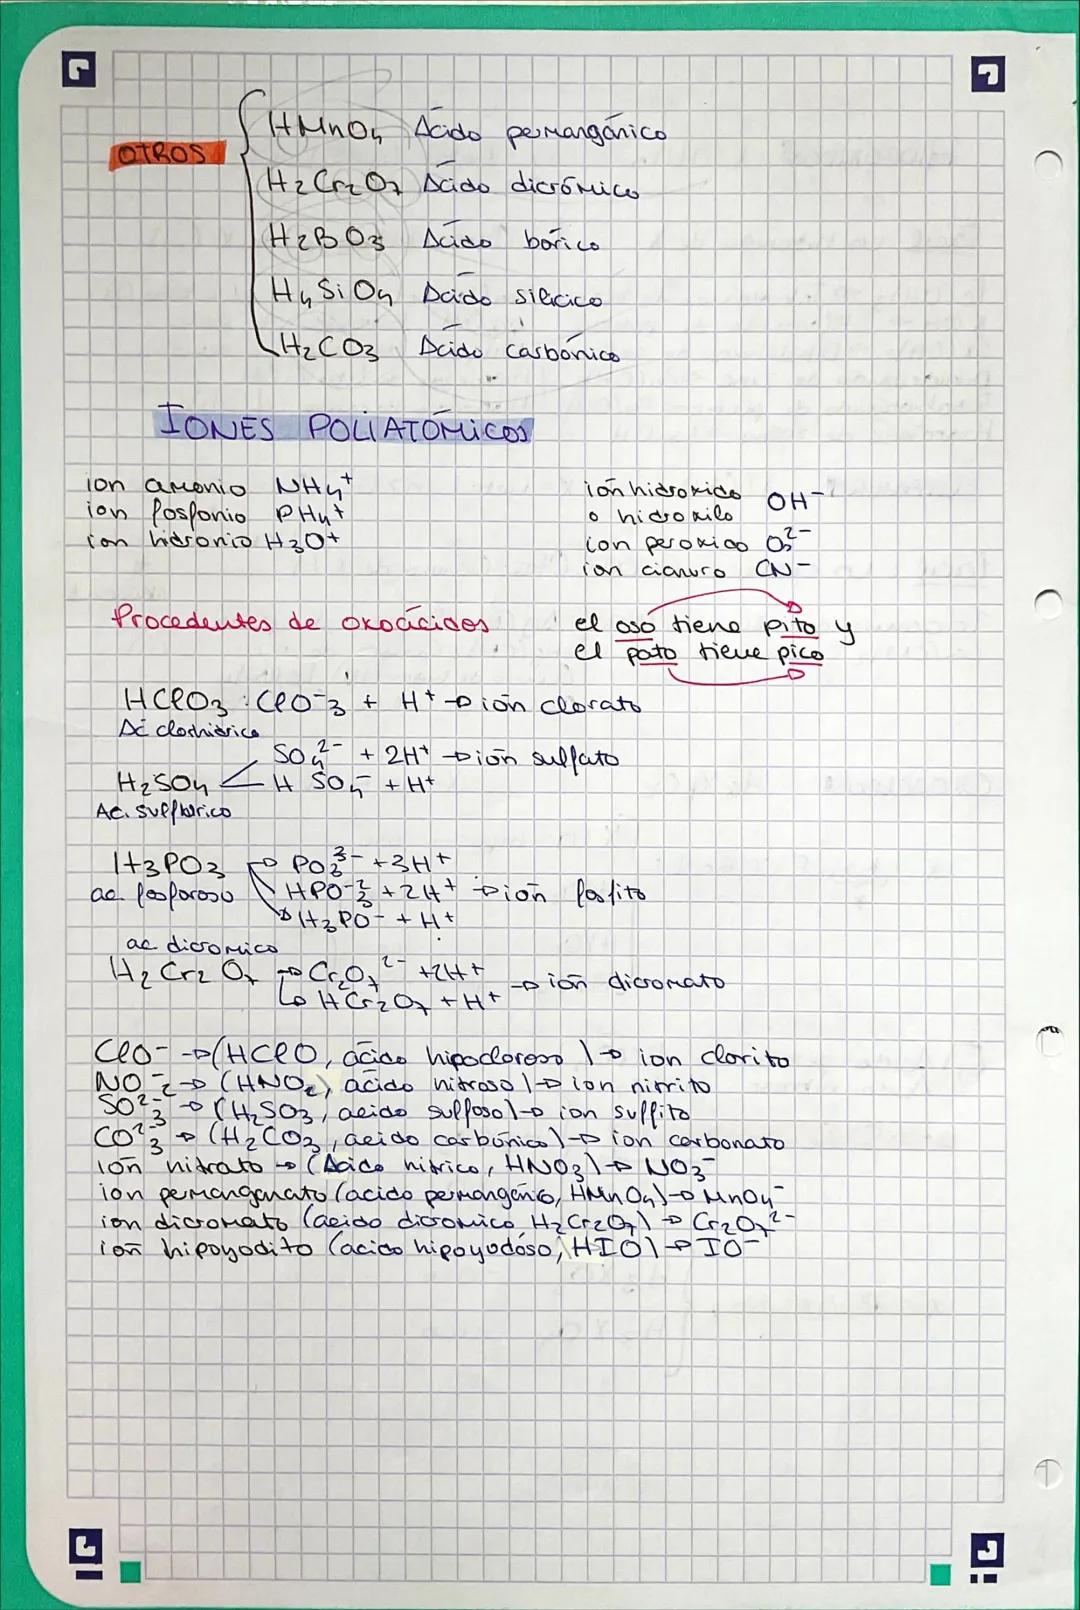 OTROS
HMnO4 Ácido permangánico
H2Cr2O7 Ácido dicrómico
H2BO3 Ácido bórico
H4SiO4 Ácido silícico
H2CO3 Ácido carbónico
IONES POLIATÓMICOS
ion amonio NH4+
ion fosfonio PH4+
ion hidronio H3O+
ión hidroxido OH-
o hidroxilo
ion peroxido O2 2-
ion cianuro CN-
Procedentes de oxoácidos
el oso tiene pito y
el pato tiene pico
HClO3 : ClO-3 + H+ → ión clorato
Ác clorhídrico
SO4 2- + 2H+ → ión sulfato
H2SO4
HSO4- + H+
Ac. sulfúrico
H3PO3 → PO3 3- + 3H+
ac. fosforoso HPO-2 3 + 2H+ → ión fosfito
H3PO- + H+
ac dicromico
H2Cr2O7 → Cr2O7 2- + 2H+
→ ión dicromato
HCr2O7 + H+
ClO- → (HClO, ácido hipocloroso) → ion clorito
NO-2 → (HNO2), ácido nitroso) → ion nitrito
SO2-3 → (H2SO3, acido sulfoso) → ion sulfito
CO2-3 → (H2CO3, acido carbónico) → ion carbonato
ión nitrato → (Ácido nítrico, HNO3) → NO3-
ion permanganato (acido permangánio, HMnO4) → MnO4-
ion dicromato (acido dicromico H2Cr2O7) → Cr2O7 2-
ión hipoyodito (acido hipoyodóso, HIO) → IO-